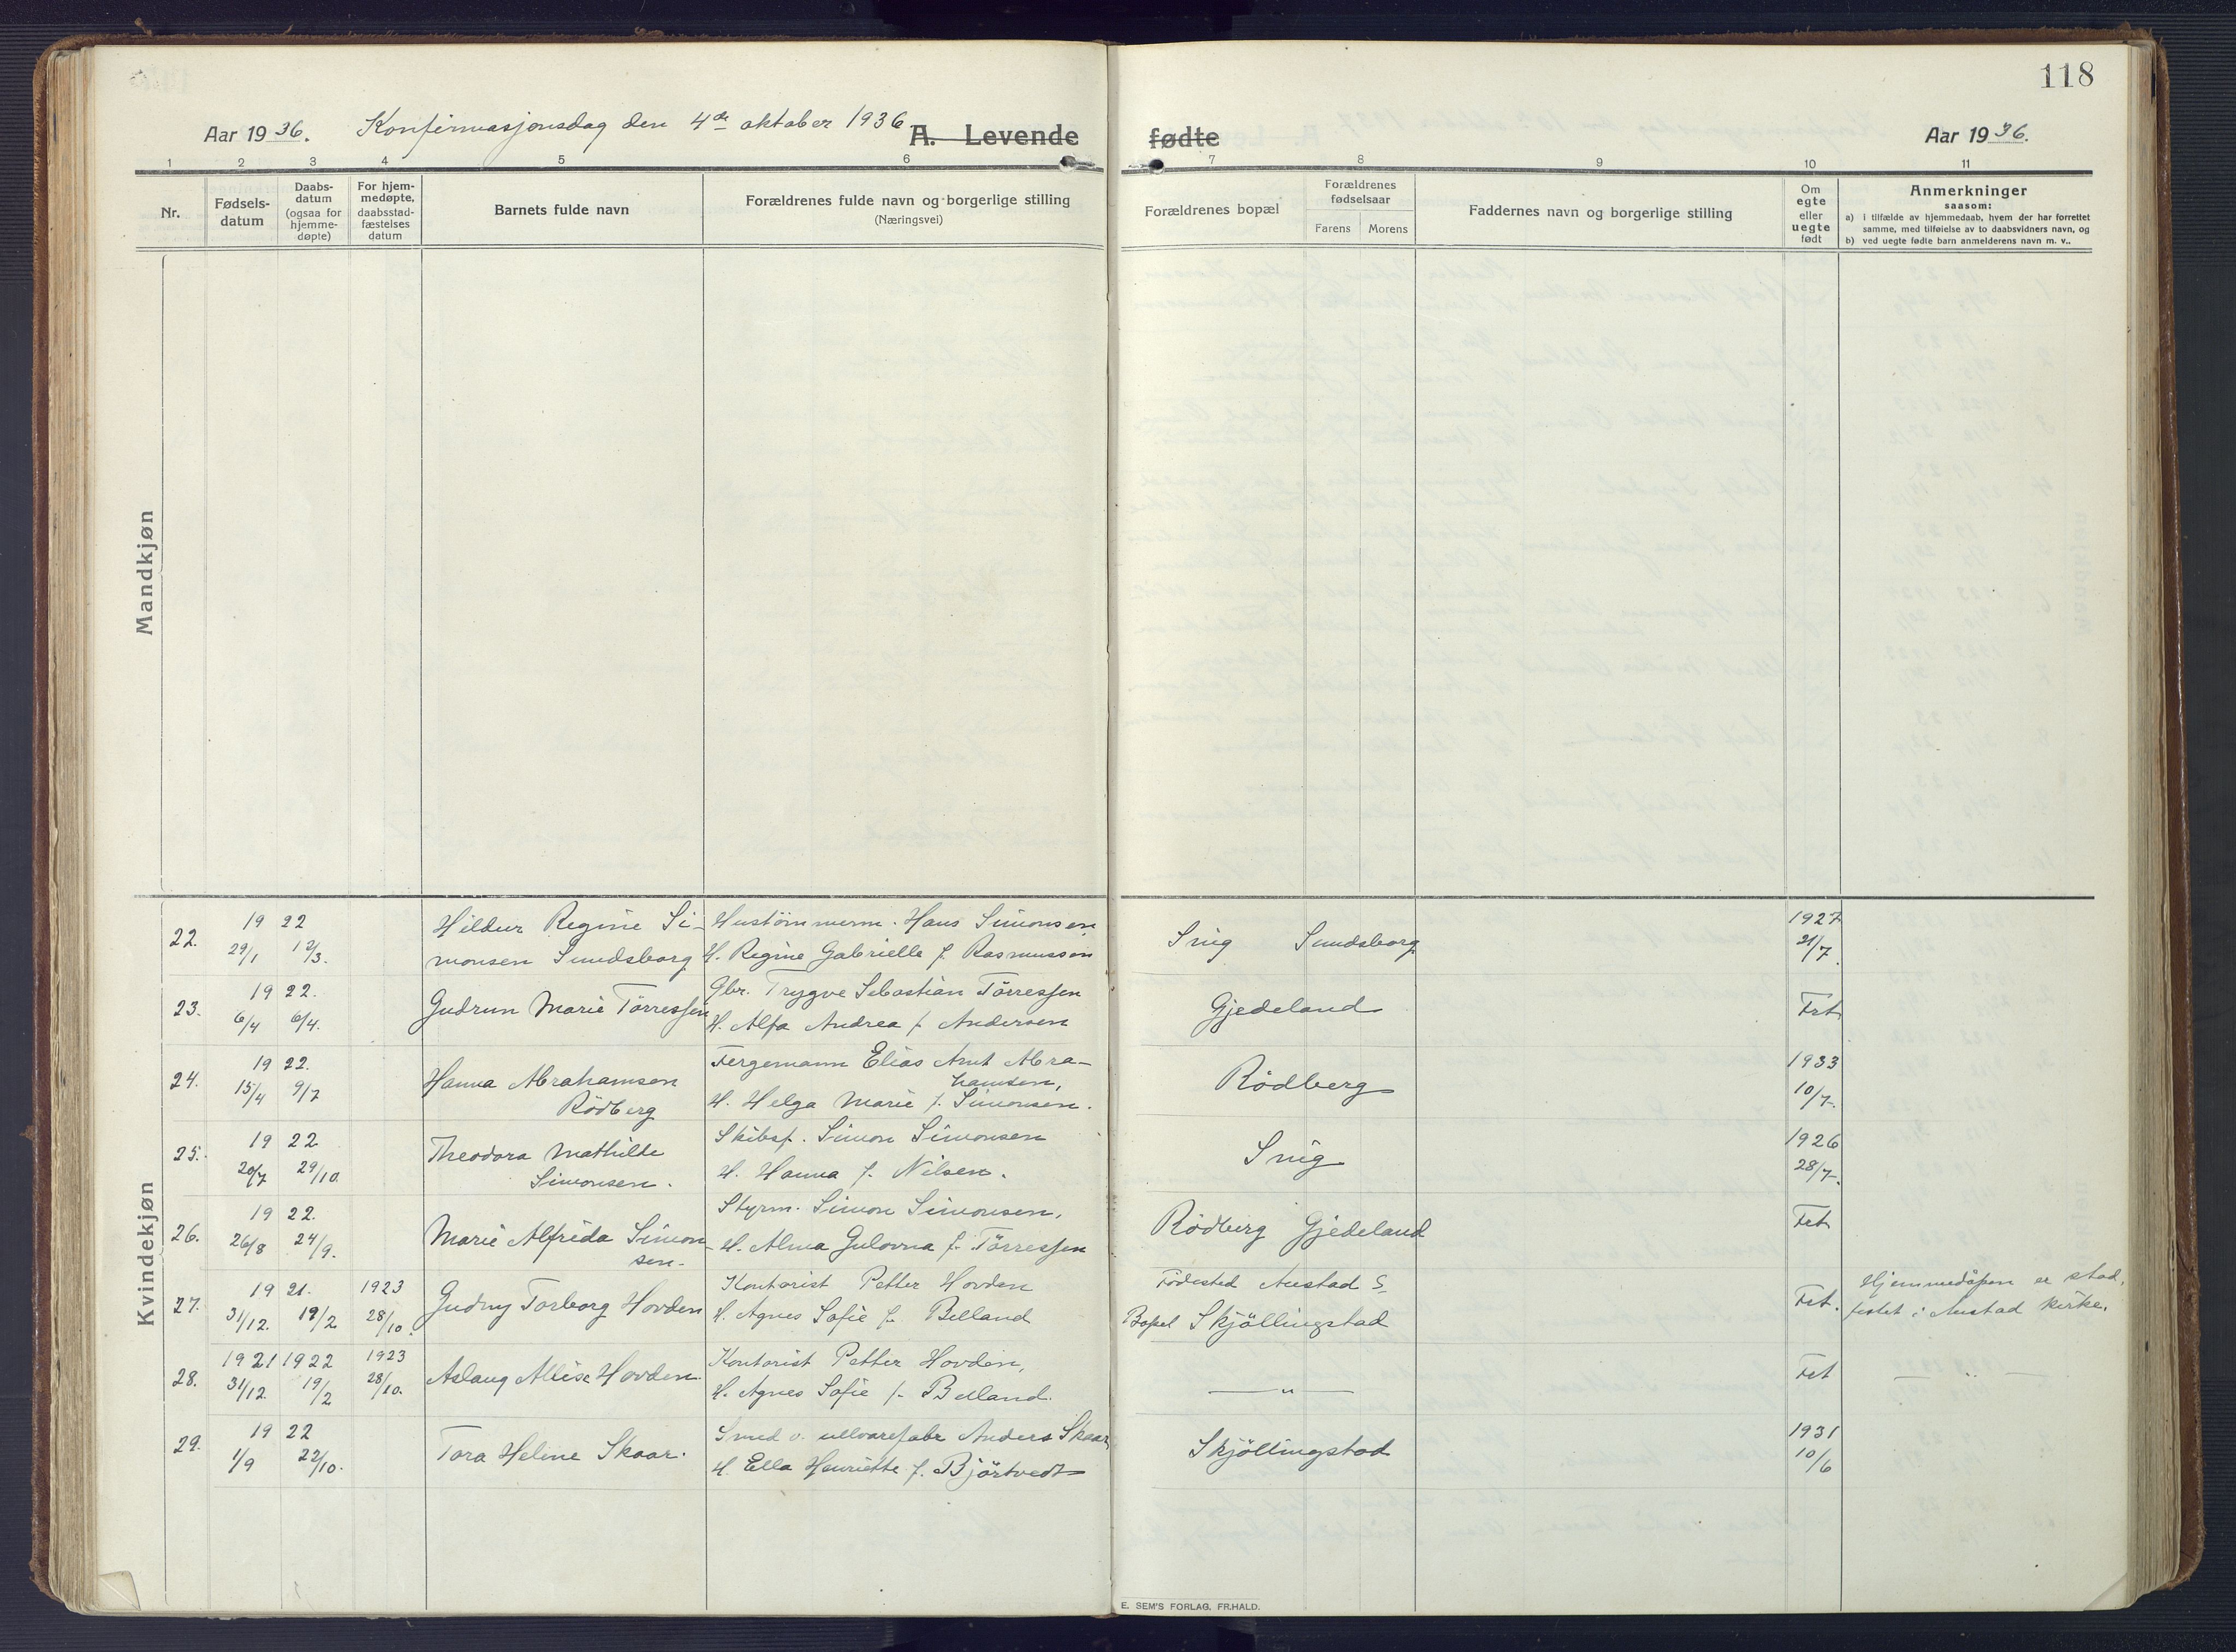 118
Aar 1936. Konfirmasjonsdag den 4de oktober 1936 A. Levende fødte Aar 1936.
1 2 3 4 5 6 7 8 9 10 11
Nr.
Fødsels-
datum
Daabs-
datum
(ogsaa for
hjemme-
døpte)
For hjem-
medøpte,
daabsstad-
fæstelses
datum
Barnets fulde navn
Forældrenes fulde navn og borgerlige stilling
(Næringsvei)
Forældrenes bopæl
Forældrenes
fødselsaar
Farens Morens
Faddernes navn og borgerlige stilling
Om
egte
eller
uegte
født
Anmerkninger
saasom:
a) i tilfælde av hjemmedaab, hvem der har forrettet
samme, med tilføielse av to daabsvidners navn, og
b) ved uegte fødte barn anmelderens navn m. v..
Mandkjøn
Kvindekjøn
22. 19 22 Hildur Regine Si- Hustömmerm. Hans Simonsen 1927
29/1 12/3. monsen Sundsborg H. Regine Gabrielle f. Rasmussen Snig Sundsborg 21/7.
23. 19 22. Gudrun Marie Törressen Gbr. Trygve Sebastian Törressen Gjedeland Frt
6/4 6/4. H. Alfa Andrea f. Andersen
24. 19 22. Hanna Abrahamsen Fergemann Elias Amt Abra- Rödberg 1933
15/4 9/7 Rödberg hamsen,
H. Helga Marie f. Simonsen. 10/7.
25. 19 22 Theodora Mathilde Skibsf. Simon Simonsen Snig 1926
20/7 29/10. Simonsen. H. Hanna f. Nilsen. 28/7.
26. 19 22. Marie Alfrida Simon- Styrm. Simon Simonsen, Rödberg Gjedeland Frt
26/8 24/9. sen. H. Alma Gulovna f. Törressen
27. 19 21. 1923 Gudny Torborg Hovden Kontorist Petter Hovden Födested Austad S. Frt. Hjemmedåpen er stad,
31/12. 19/2 28/10. H. Agnes Sofie f. Belland Bopel Skjöllingstad festet i Austad kirke.
28. 1921 1922 1923 Aslaug Allise Hovden. Kontorist Petter Hovden, — " — Frt — " —
31/12. 19/2 28/10. H. Agnes Sofie f. Belland.
29. 19 22 Tora Helene Skaar. Smed v. ullvarefabr Anders Skaar Skjöllingstad 1931
1/9 22/10. H. Ella Henriette f. Björtvedt 10/6
E. SEM'S FORLAG, FR.HALD.